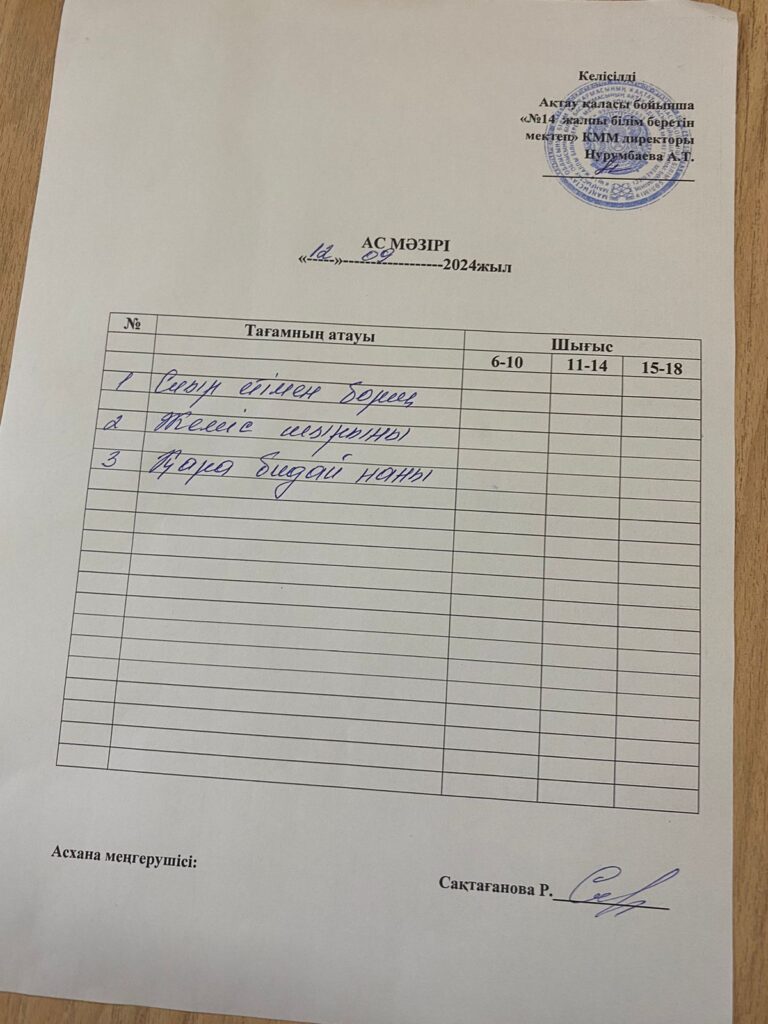 Келісілді
Ақтау қаласы бойынша
«№14 жалпы білім беретін
мектеп» КММ директоры
Нурумбаева А.Т.
АС МӘЗІРІ
«12» 09 2024жыл
№ Тағамның атауы Шығыс
6-10 11-14 15-18
1 Сиыр етімен борщ
2 Жеміс шырыны
3 Қара бидай наны
Асхана меңгерушісі:
Сақтағанова Р.